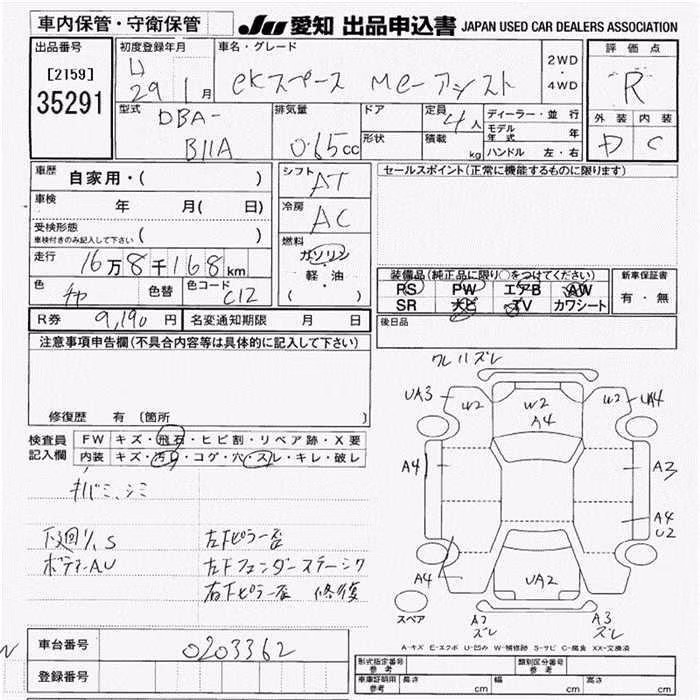 車内保管・守衛保管
JU 愛知 出品申込書 JAPAN USED CAR DEALERS ASSOCIATION
出品番号
[2159]
35291
初度登録年月
H
29 1月
車名・グレード
eKスペース Me-アシスト
2WD
・
4WD
評価点
R
外装 内装
D C
型式
DBA-
B11A
排気量
0.65cc
ドア
形状
定員
4人
積載
kg
ディーラー・並行
モデル年式 年
ハンドル 左・右
車歴
自家用・( )
車検
年 月( 日)
受検形態
車検付きのみ記入して下さい ( )
走行
16万8千168km
色
チャ
色替
色コード
C12
シフト
AT
冷房
AC
燃料
ガソリン
・
軽・油
( )
セールスポイント(正常に機能するものに限ります)
装備品(純正品に限り○をつけてください)
PS PW エアB AW
SR ナビ TV カワシート
新車保証書
有・無
後日品
R券 9,190円
名変通知期限 月 日
注意事項申告欄(不具合内容等は具体的に記入して下さい)
修復歴 有 〔箇所
検査員
記入欄
FW キズ・飛石・ヒビ割・リペア跡・X要
内装 キズ・汚れ・コゲ・穴・スレ・キレ・破レ
キバミ、シミ
下廻り、S
ボディーAU
左下ピラー歪
左下フェンダーステーシワ
右下ピラー歪 修復
ワレハズレ
UA3
W2
W2
A4
W2
UA4
A4
A3
A4
U2
A4
UA2
スペア
A2
ズレ
A3
ズレ
A-キズ E-エクボ U-凹み W-補修跡 S-サビ C-腐食 XX-交換済
車台番号
0203362
登録番号
形式指定番号
参考
類別区分番号
参考
車庫証明用
参考
長さ cm
幅 cm
高さ cm